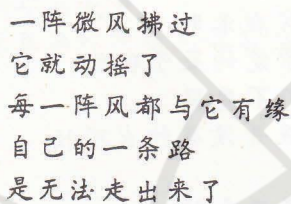 一阵微风拂过
它就动摇了
每一阵风都与它有缘
自己的一条路
是无法走出来了